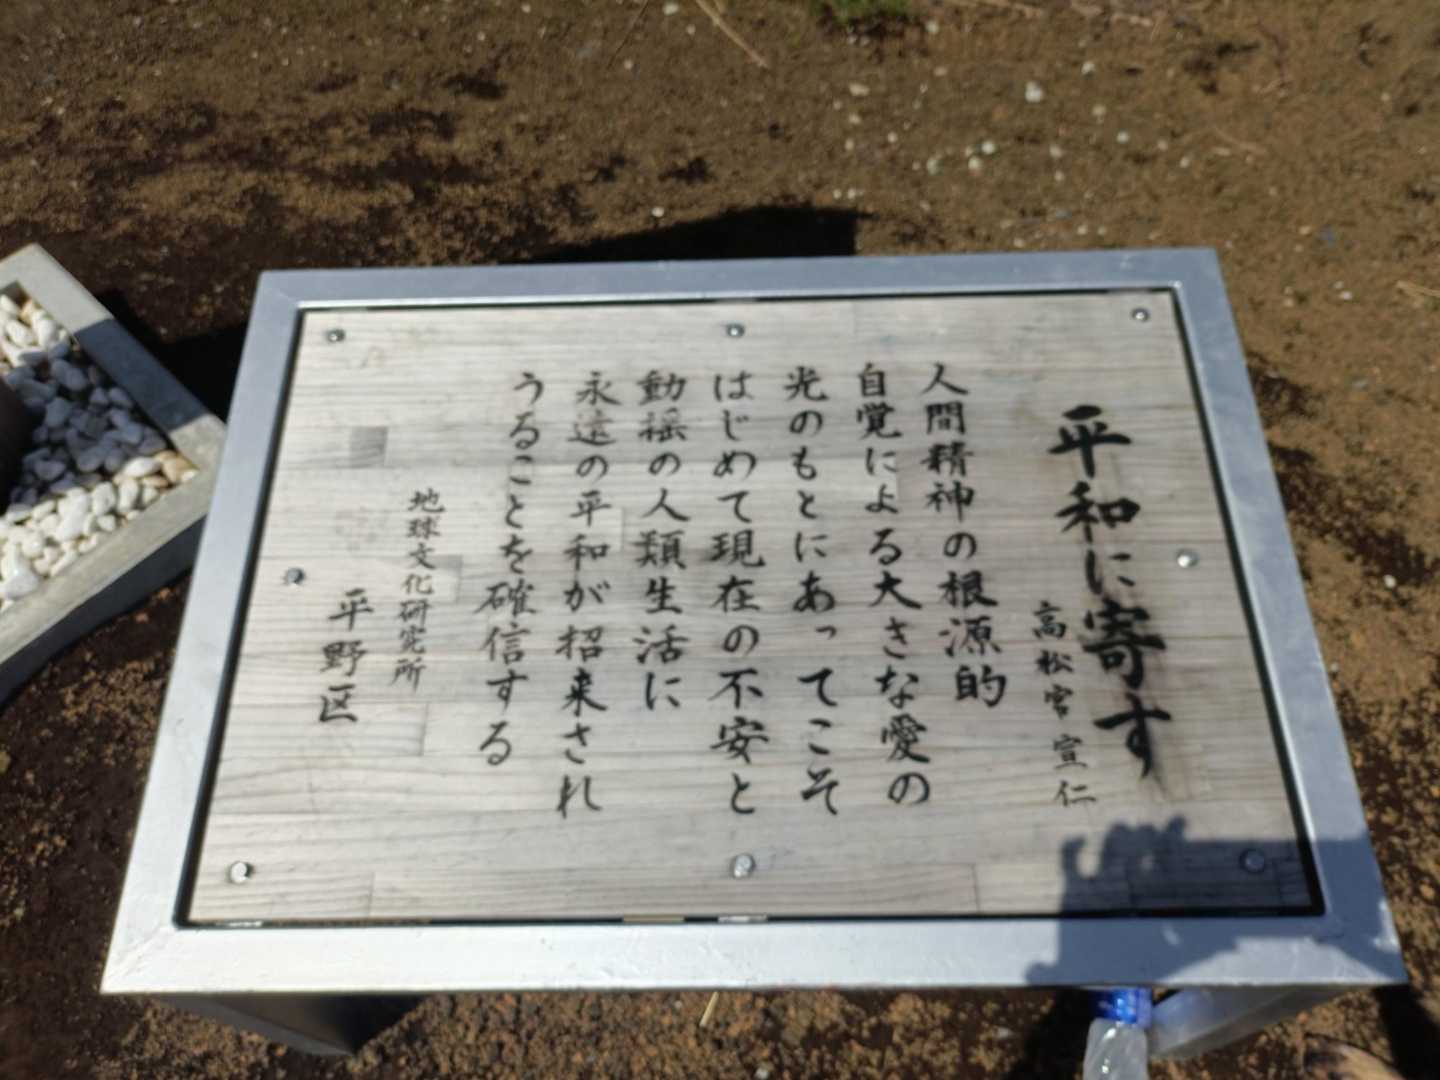 平和に寄す
高松宮宣仁
人間精神の根源的
自覚による大きな愛の
光のもとにあってこそ
はじめて現在の不安と
動揺の人類生活に
永遠の平和が招来され
うることを確信する
地球文化研究所
平野区